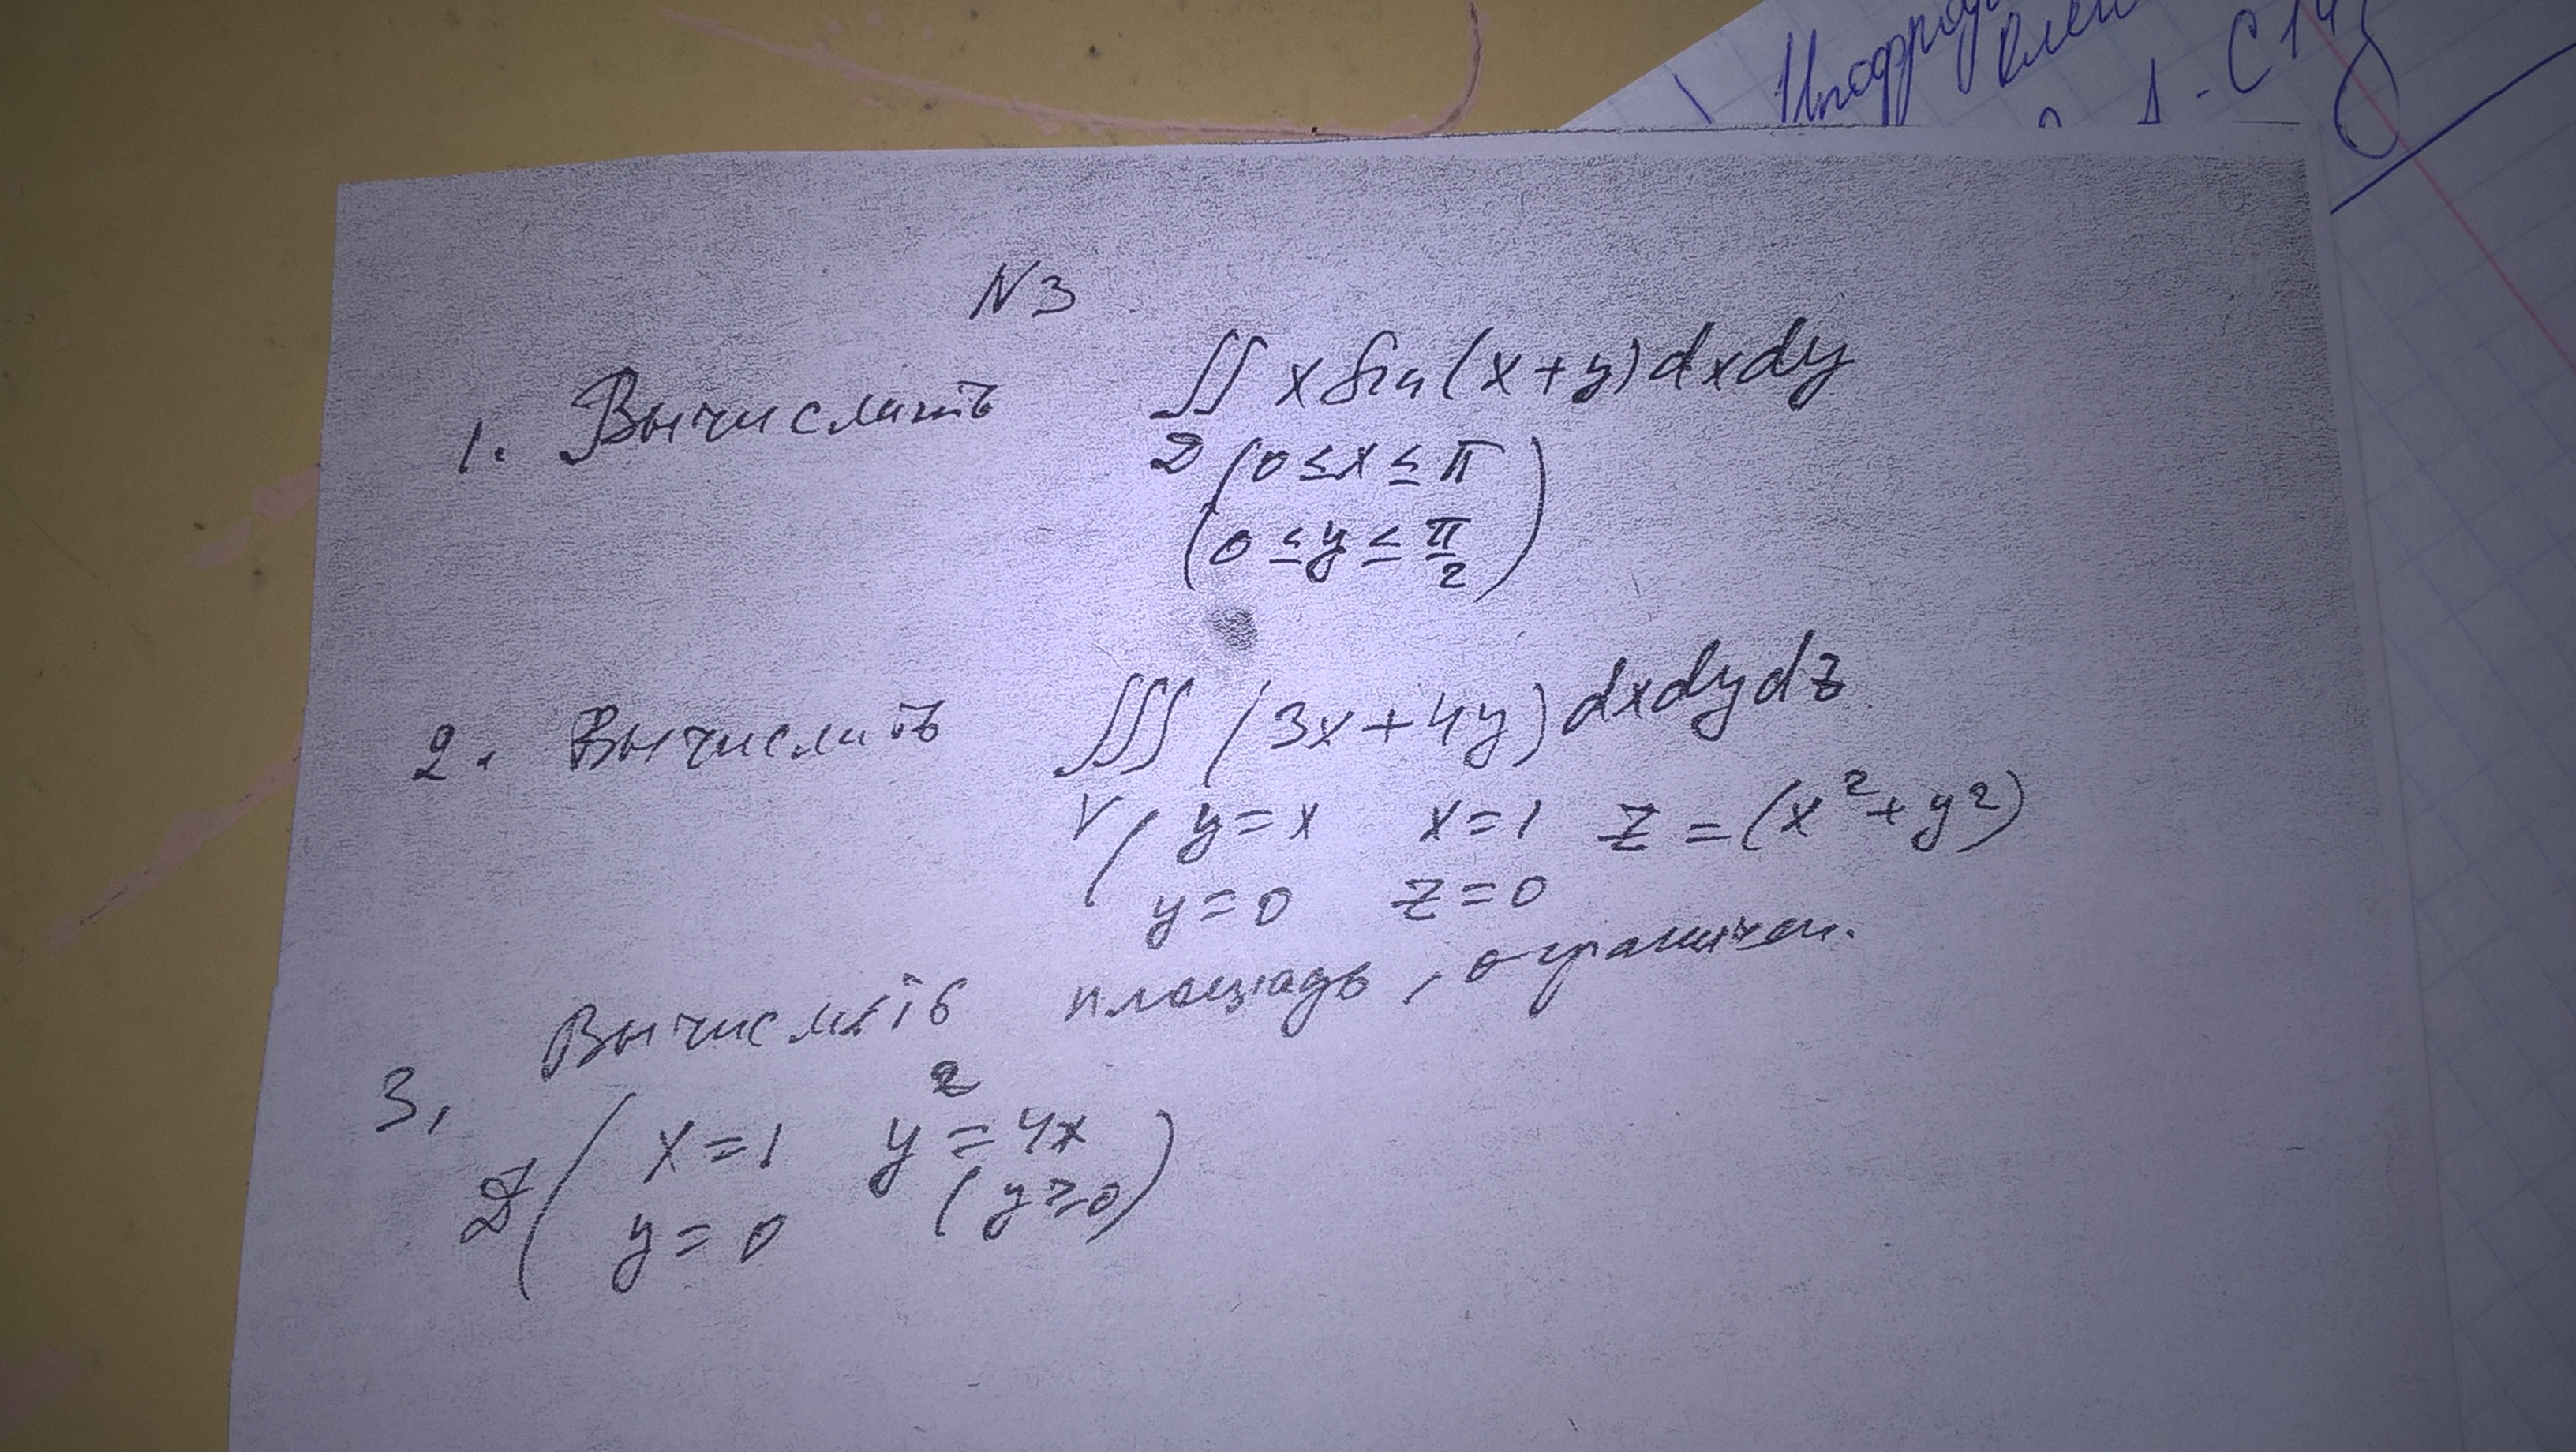 N3
1. Вычислить ∬ x sin(x+y)dxdy
D (0≤x≤π
(0≤y≤π/2)
2. Вычислить ∭ (3x+4y)dxdydz
V ( y=x x=1 z=(x²+y²)
y=0 z=0
Вычислить площадь, ограничен.
3, D ( x=1 y²=4x
y=0 (y≥0) )